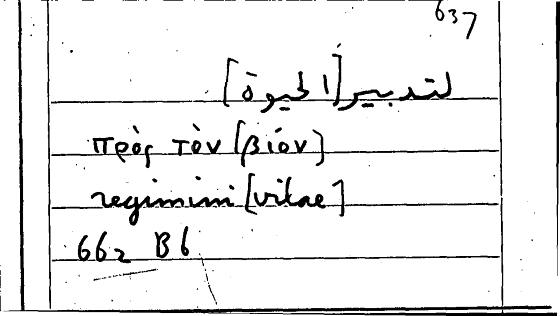 637
لتدبير [الحيوة]
πρὸς τὸν [βίον]
regimini [vitae]
662 B6